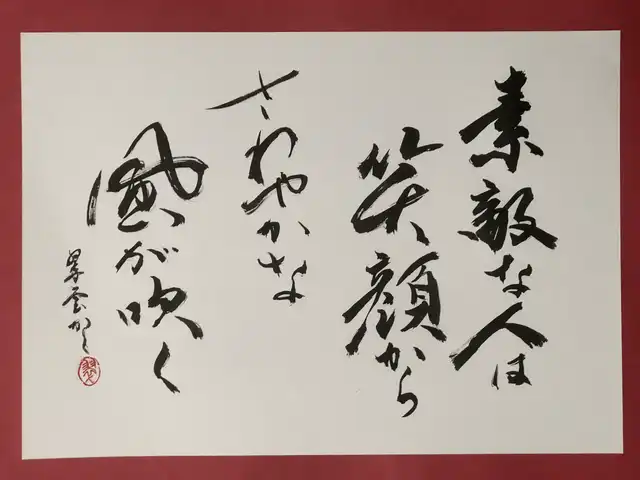 素敵な人は
笑顔から
さわやかな
風が吹く